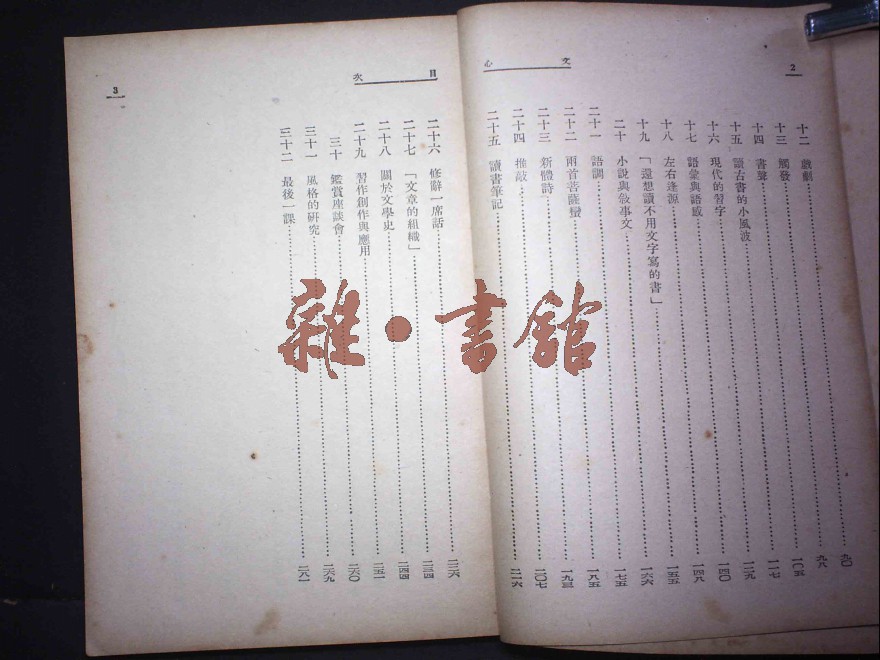 2
文心
十二 戲劇……九〇
十三 觸發……九八
十四 書聲……一〇五
十五 讀古書的小風波……一一七
十六 現代的習字……一二九
十七 語彙與語感……一四〇
十八 左右逢源……一四八
十九 「還想讀不用文字寫的書」……一五五
二十 小說與敍事文……一六六
二十一 語調……一七五
二十二 兩首菩薩蠻……一八五
二十三 新體詩……一九三
二十四 推敲……二〇七
二十五 讀書筆記……二一六
目次
3
二十六 修辭一席話……二二六
二十七 「文章的組織」……二三四
二十八 關於文學史……二四四
二十九 習作創作與應用……二五一
三十 鑑賞座談會……二六〇
三十一 風格的研究……二六九
三十二 最後一課……二八一
雜·書館